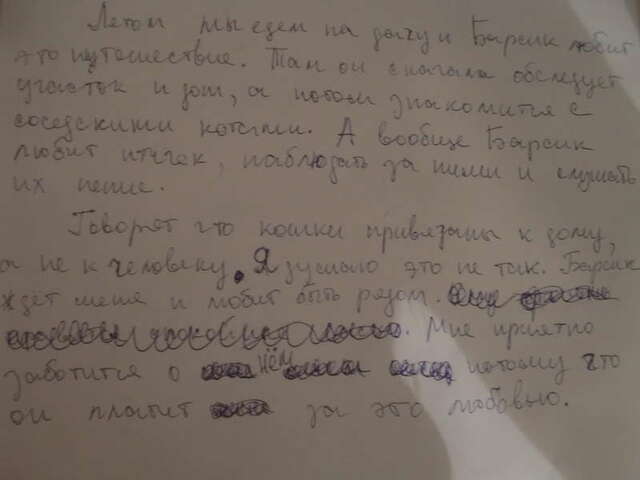 Летом мы едем на дачу и Барсик любит
это путешествие. Там он сначала обследует
участок и дом, а потом знакомится с
соседскими котами. А вообще Барсик
любит птичек, наблюдать за ними и слушать
их пение.
Говорят что кошки привязаны к дому,
а не к человеку. Я думаю это не так. Барсик
ждёт меня и любит быть рядом.
Мне приятно
заботится о нём потому что
он платит за это любовью.